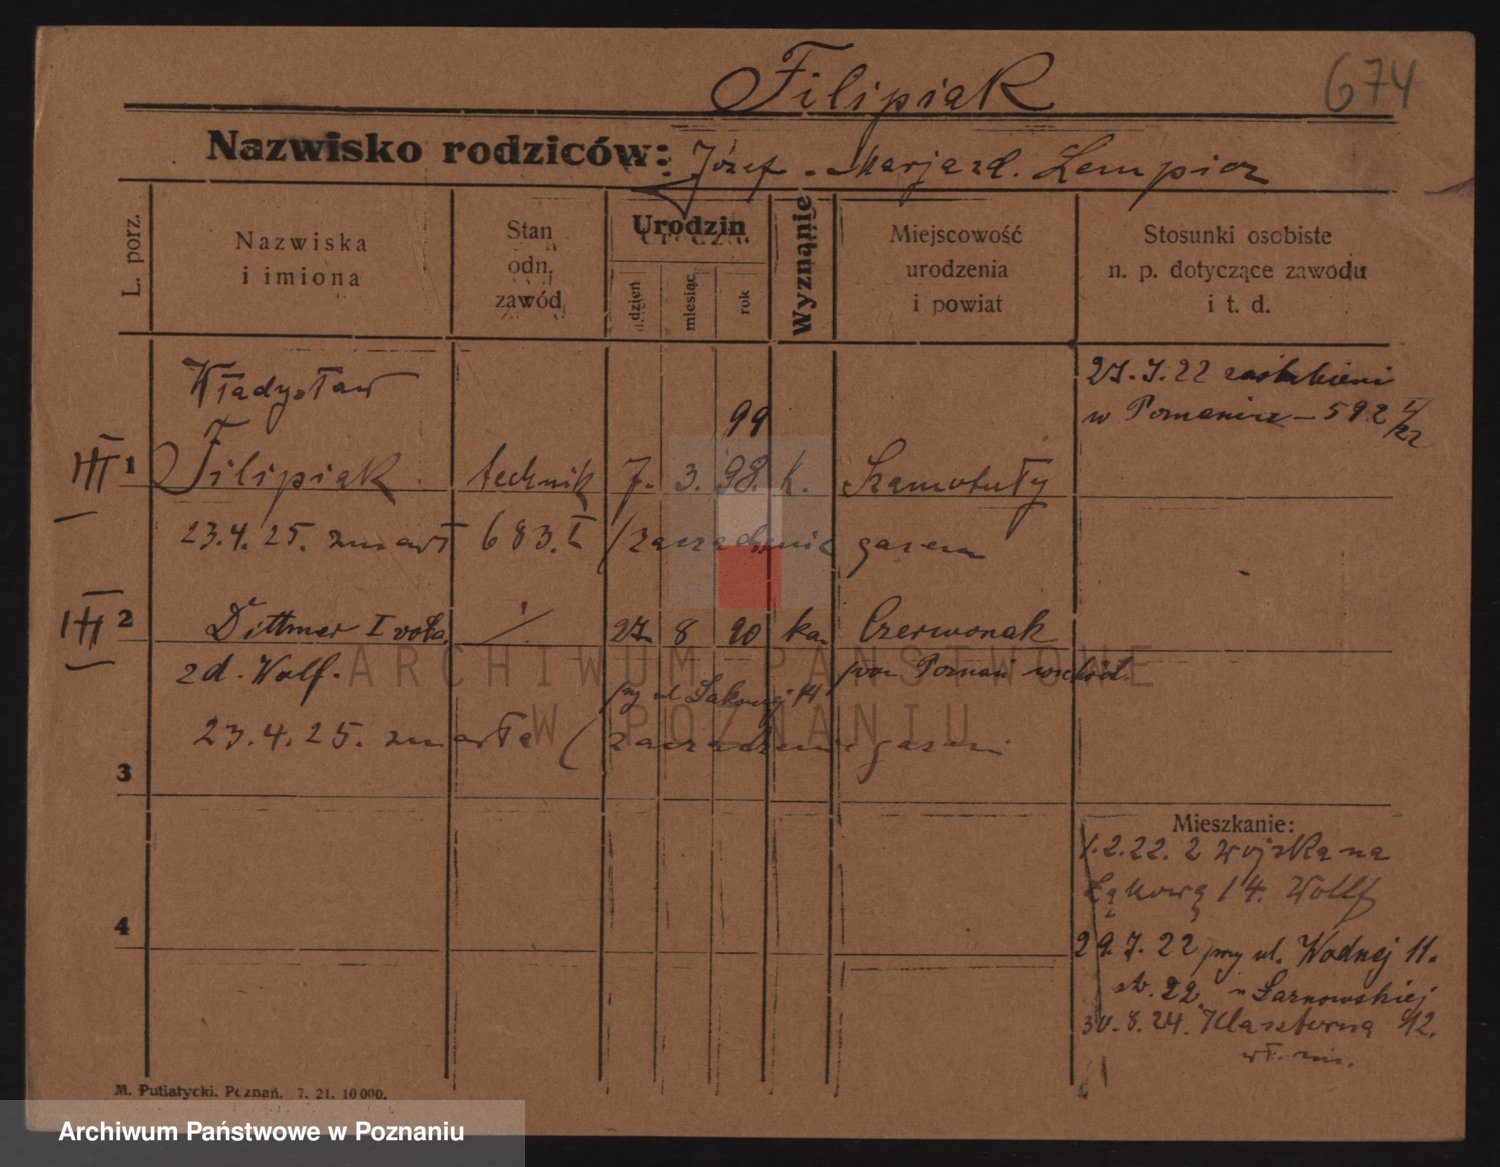 Filipiak
674
Nazwisko rodziców: Józef - Marja zd. Lempicz
L. porz.
Nazwiska i imiona
Stan odn. zawód
Urodzin
dzień
miesiąc
rok
Wyznanie
Miejscowość urodzenia i powiat
Stosunki osobiste n. p. dotyczące zawodu i t. d.
27.7.22 zaślubieni
w Poznaniu - 592
Władysław
99
III 1 Filipiak technik 7. 3. 98. k. Szamotuły
23.4.25. zmarł 683. I (zaczadzenie gazem
III 2 Dittmer I voto. 27 8 90 ka. Czerwonak
zd. Wolf. pow Poznań wschód.
przy ul Łąkowej 14
23.4.25. zmarła (zaczadzenie gazem
3
Mieszkanie:
1.2.22. z wojska na
Łąkową 14. Wolff
4
29.7.22 przy ul. Wodnej 11.
22. u Sarnowskiej
30.8.24. Klasztorna 12.
wł. mie.
M. Putiatycki. Poznań. 7. 21. 10 000.
ARCHIWUM PAŃSTWOWE
W POZNANIU
Archiwum Państwowe w Poznaniu